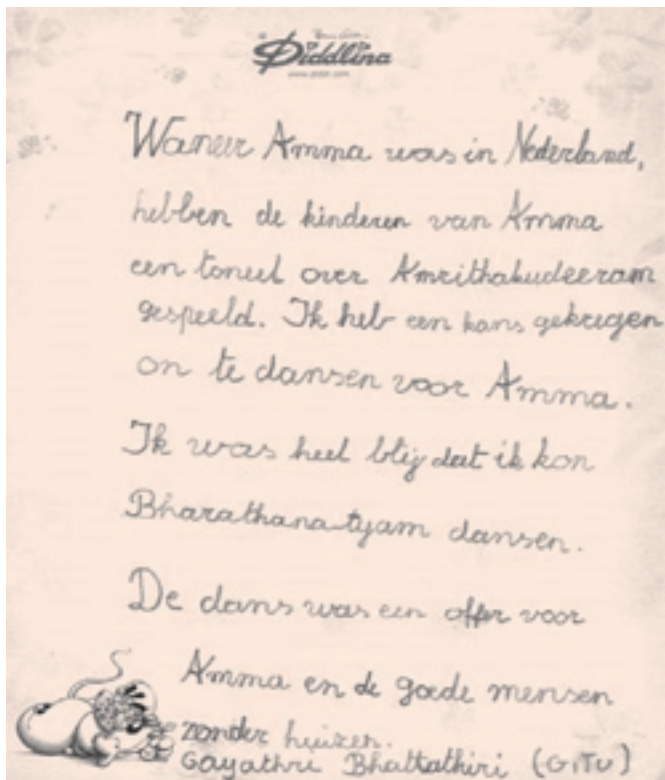 Diddlina
www.diddl.com
Waneer Amma was in Nederland,
hebben de kinderen van Amma
een toneel over Amrithakudeeram
gespeeld. Ik heb een kans gekregen
om te dansen voor Amma.
Ik was heel blij dat ik kon
Bharathana-tyam dansen.
De dans was een offer voor
Amma en de goede mensen
zonder huizen.
Gayathri Bhattathiri (GiTU)